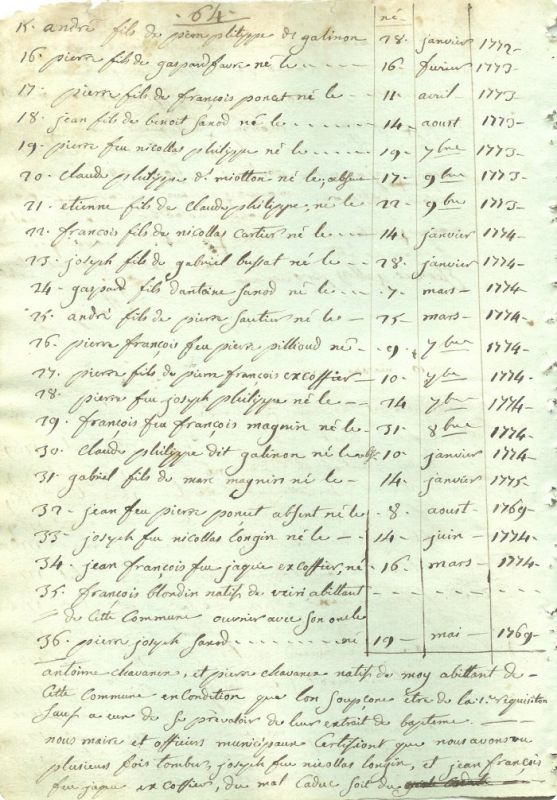 64.
né
15. andré fils de pierre philippe dt galinon 28 janvier 1772
16. pierre fils de gaspard favre né le 16 fevrier 1773
17. pierre fils de françois poncet né le 11 avril 1773
18. jean fils de benoit sanod né le 14 aoust 1773
19. pierre feu nicollas philippe né le 19 7bre 1773
20. Claude philippe dt miotton né le, absent 17 9bre 1773
21. etienne fils de Claude philippe, né le 22 9bre 1773
22. françois fils de nicollas Cartier né le 14 janvier 1774
23. joseph fils de gabriel bussat né le 28 janvier 1774
24. gaspard fils dantoine Sanod né le 7 mars 1774
25. andré fils de pierre Sautier né le 25 mars 1774
26. pierre françois feu pierre pillioud né 9 7bre 1774
27. pierre fils de pierre françois excoffier 10 7bre 1774
28. pierre feu joseph philippe né le 24 7bre 1774
29. françois feu françois magnin né le 31 8bre 1774
30. Claude philippe dit galinon né le abs 10 janvier 1774
31. gabriel fils de marc magnin né le 14 janvier 1775
32. jean feu pierre poncet absent né le 8 aoust 1769
33. joseph feu nicollas longin né le 14 juin 1774
34. jean françois feu jaque excoffier, né 16 mars 1774
35. françois blondin natif de abittant
de Cette Commune ouvrier avec son oncle
36. pierre joseph Sanod né 19 mai 1769
antoine chavanex, et pierre chavanex natif de moy abittant de
Cette Commune en Condition que lon soupçone être de la 1re requisition
Sauf a eux de se prevaloir de leur extrait de bapteme.
nous maire et officiers municipaux Certifiont que nous avons vu
plusieurs fois tomber, joseph feu nicollas longin, et jean françois
feu jaque excoffier, du mal Caduc soit du